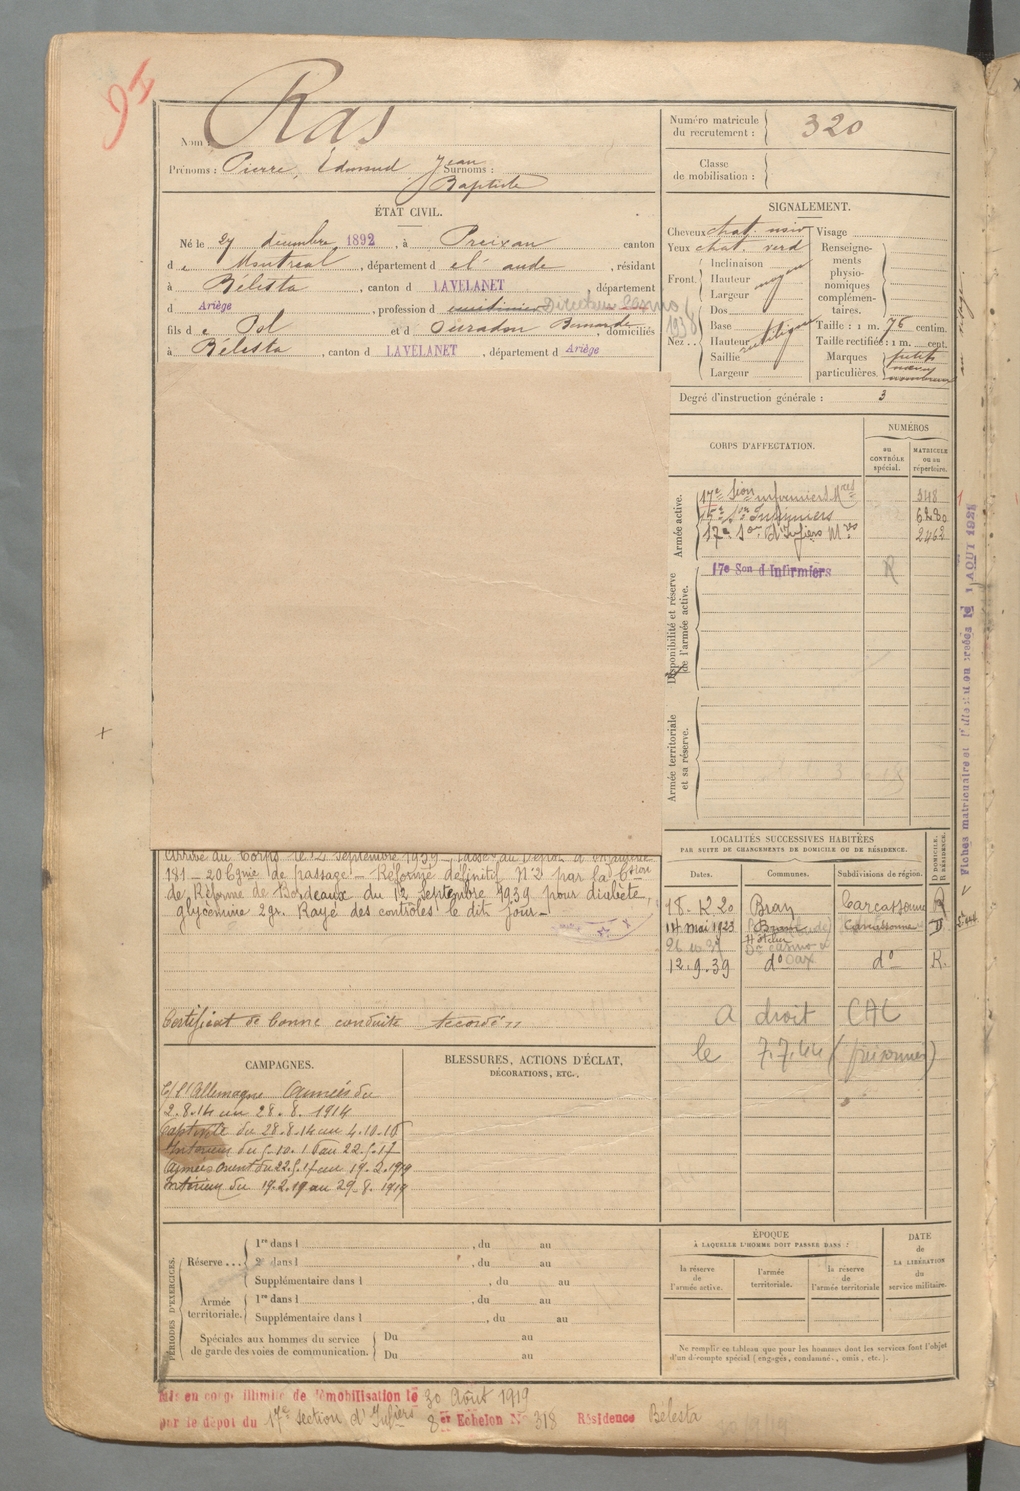 Nom : Ras
Prénoms : Pierre, Edmond Jean Surnoms :
Baptiste
Numéro matricule du recrutement : 320
Classe de mobilisation :
ÉTAT CIVIL.
Né le 27 décembre 1892, à Preixan canton
de Montréal, département d el' aude, résidant
à Bélesta, canton d LAVELANET département
d Ariège, profession d Directeur Casino
1938
fils de Pol et d Bernarde, domiciliés
à Bélesta, canton d LAVELANET, département d Ariège
SIGNALEMENT.
Cheveux chat. noir Visage
Yeux chat. verd Renseignements physionomiques complémentaires.
Front. Inclinaison
Hauteur moyen
Largeur
Nez .. Dos
Base
Hauteur rectiligne
Saillie
Largeur
Taille : 1 m. 76 centim.
Taille rectifiée : 1 m. cent.
Marques particulières. petits
nombreux
Degré d'instruction générale : 3
CORPS D'AFFECTATION.
NUMÉROS
au CONTRÔLE spécial.
MATRICULE ou au répertoire.
Armée active.
17e Sion infirmiers Mres 348
15e Son Infirmiers 6280
17e Son d'Infiers Mres 2462
Disponibilité et réserve de l'armée active.
17e Son d Infirmiers R
Armée territoriale et sa réserve.
Arrivé au Corps le 12 septembre 1939 – Passé au Dépôt d'
181 – 20 Cgnie de passage – Réformé définitif N°2 par la Csion
de Réforme de Bordeaux du 12 Septembre 1939 pour diabète,
glycémie 2 gr. Rayé des contrôles le dit jour –
Certificat de bonne conduite Accordé
LOCALITÉS SUCCESSIVES HABITÉES
PAR SUITE DE CHANGEMENTS DE DOMICILE OU DE RÉSIDENCE.
Dates. Communes. Subdivisions de région. D DOMICILE. R RÉSIDENCE.
18. 12 20 Bram Carcassonne R
14 mai 1923 Bram Carcassonne D
Hôtelier
Dr casino
12.9.39 do Dax do R.
A droit CAC
le 7.7.44 (prisonnier)
CAMPAGNES.
C/ l'Allemagne Armées du
2.8.14 au 28.8.1914
Captivité du 28.8.14 au 4.10.16
Intérieur du 5.10.16 au 22.5.17
Armées Orient du 22.5.17 au 19.2.1919
Intérieur du 19.2.19 au 29.8.1919
BLESSURES, ACTIONS D'ÉCLAT,
DÉCORATIONS, ETC..
PÉRIODES D'EXERCICES.
Réserve ... 1re dans l , du au
2e dans l , du au
Supplémentaire dans l , du au
Armée territoriale. 1re dans l , du au
Supplémentaire dans l , du au
Spéciales aux hommes du service de garde des voies de communication. Du au
Du au
ÉPOQUE
À LAQUELLE L'HOMME DOIT PASSER DANS :
la réserve de l'armée active.
l'armée territoriale.
la réserve de l'armée territoriale
DATE de LA LIBÉRATION du service militaire.
Ne remplir ce tableau que pour les hommes dont les services font l'objet
d'un décompte spécial (engagés, condamné., omis, etc.).
Mis en congé illimité de démobilisation le 30 Août 1919
par le dépôt du 17e section d'Infiers 8er Echelon No 318 Résidence Bélesta